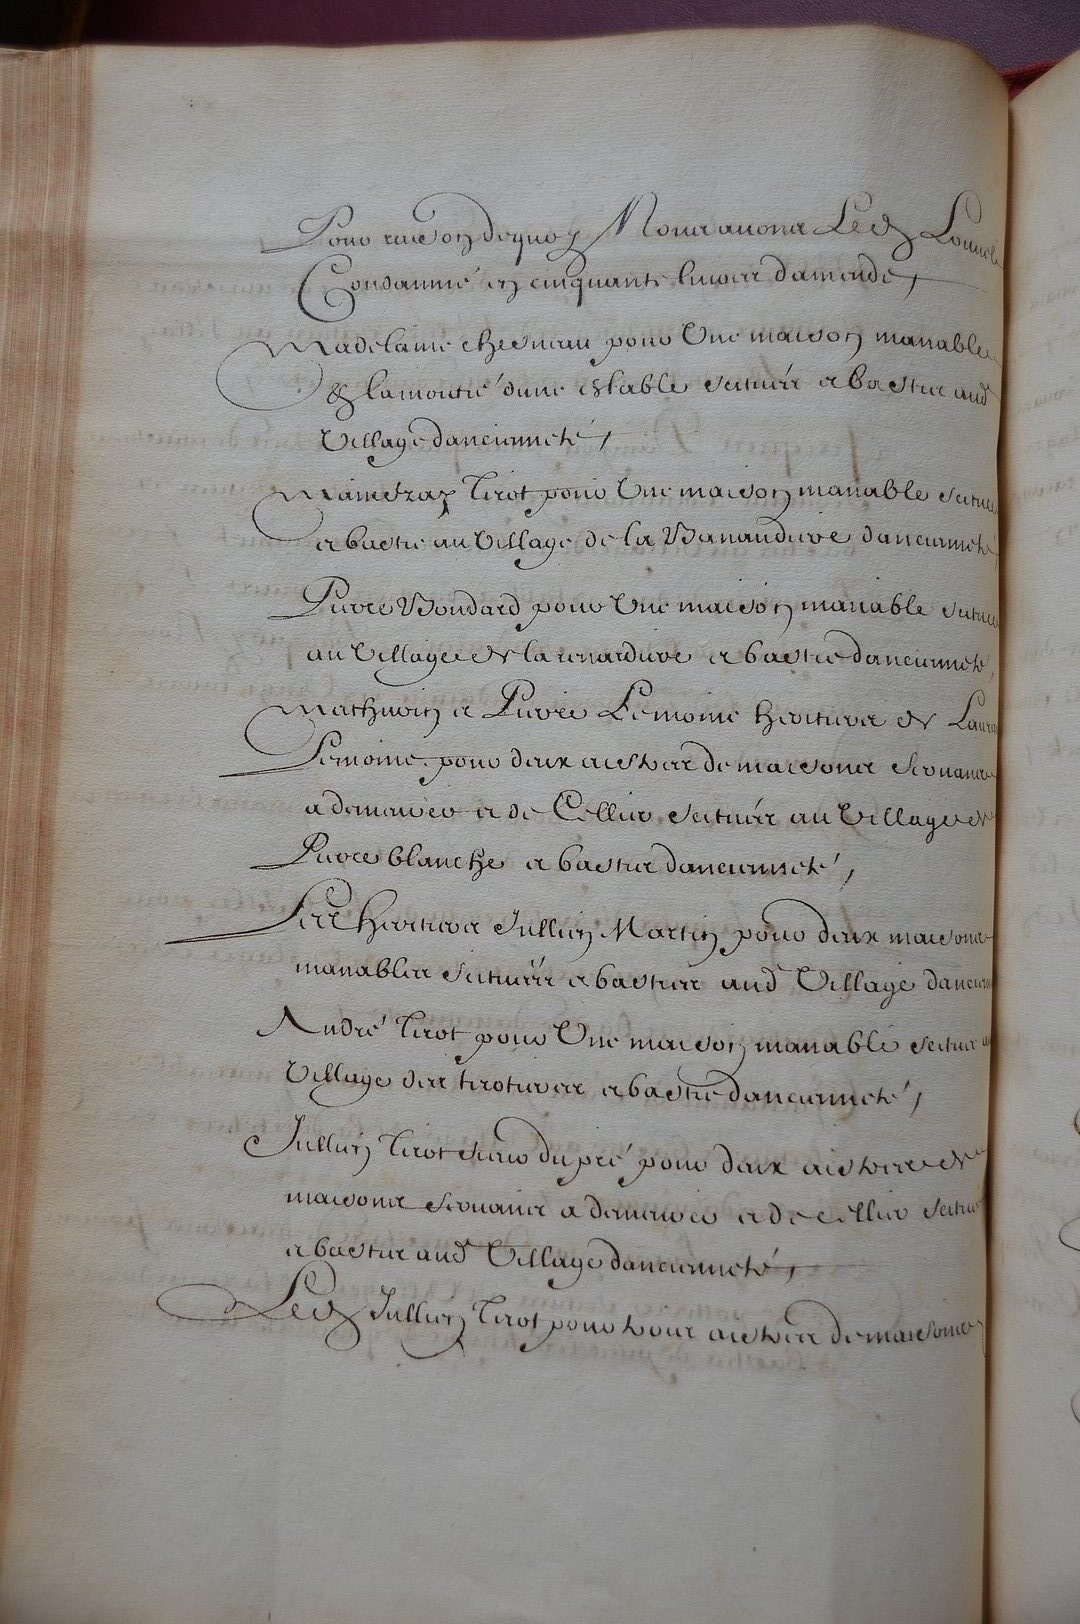 Pour raison dequoy Nous auons Led
Condamné en cinquante liures damende,
Madelaine chesneau pour Vne maison manable
& lamoitié dune estable scituées & basties aud
Village dancienneté,
Tirot pour Vne maison manable scituée
& bastie au Village de la dancienneté
Pierre Boudard pour Vne maison manable scituée
au Village de la renardiere & bastie dancienneté,
Mathurin & Pierre Lemoine heritiers de
Lemoine pour deux aistres de maisons seruans
a demeurer & de Cellier scitués au Village de
Pierre blanche & basties dancienneté,
Les heritiers Jullien Martin pour deux maisons
manables scituées & basties aud Village
André Tirot pour Vne maison manable scituée au
Village des tirotieres & bastie dancienneté,
Jullien Tirot sieur du pré pour deux aistres de
maisons seruans a demeurer & de cellier scitués
& basties aud Village dancienneté,
Led Jullien Tirot pour trois aistres de maisons